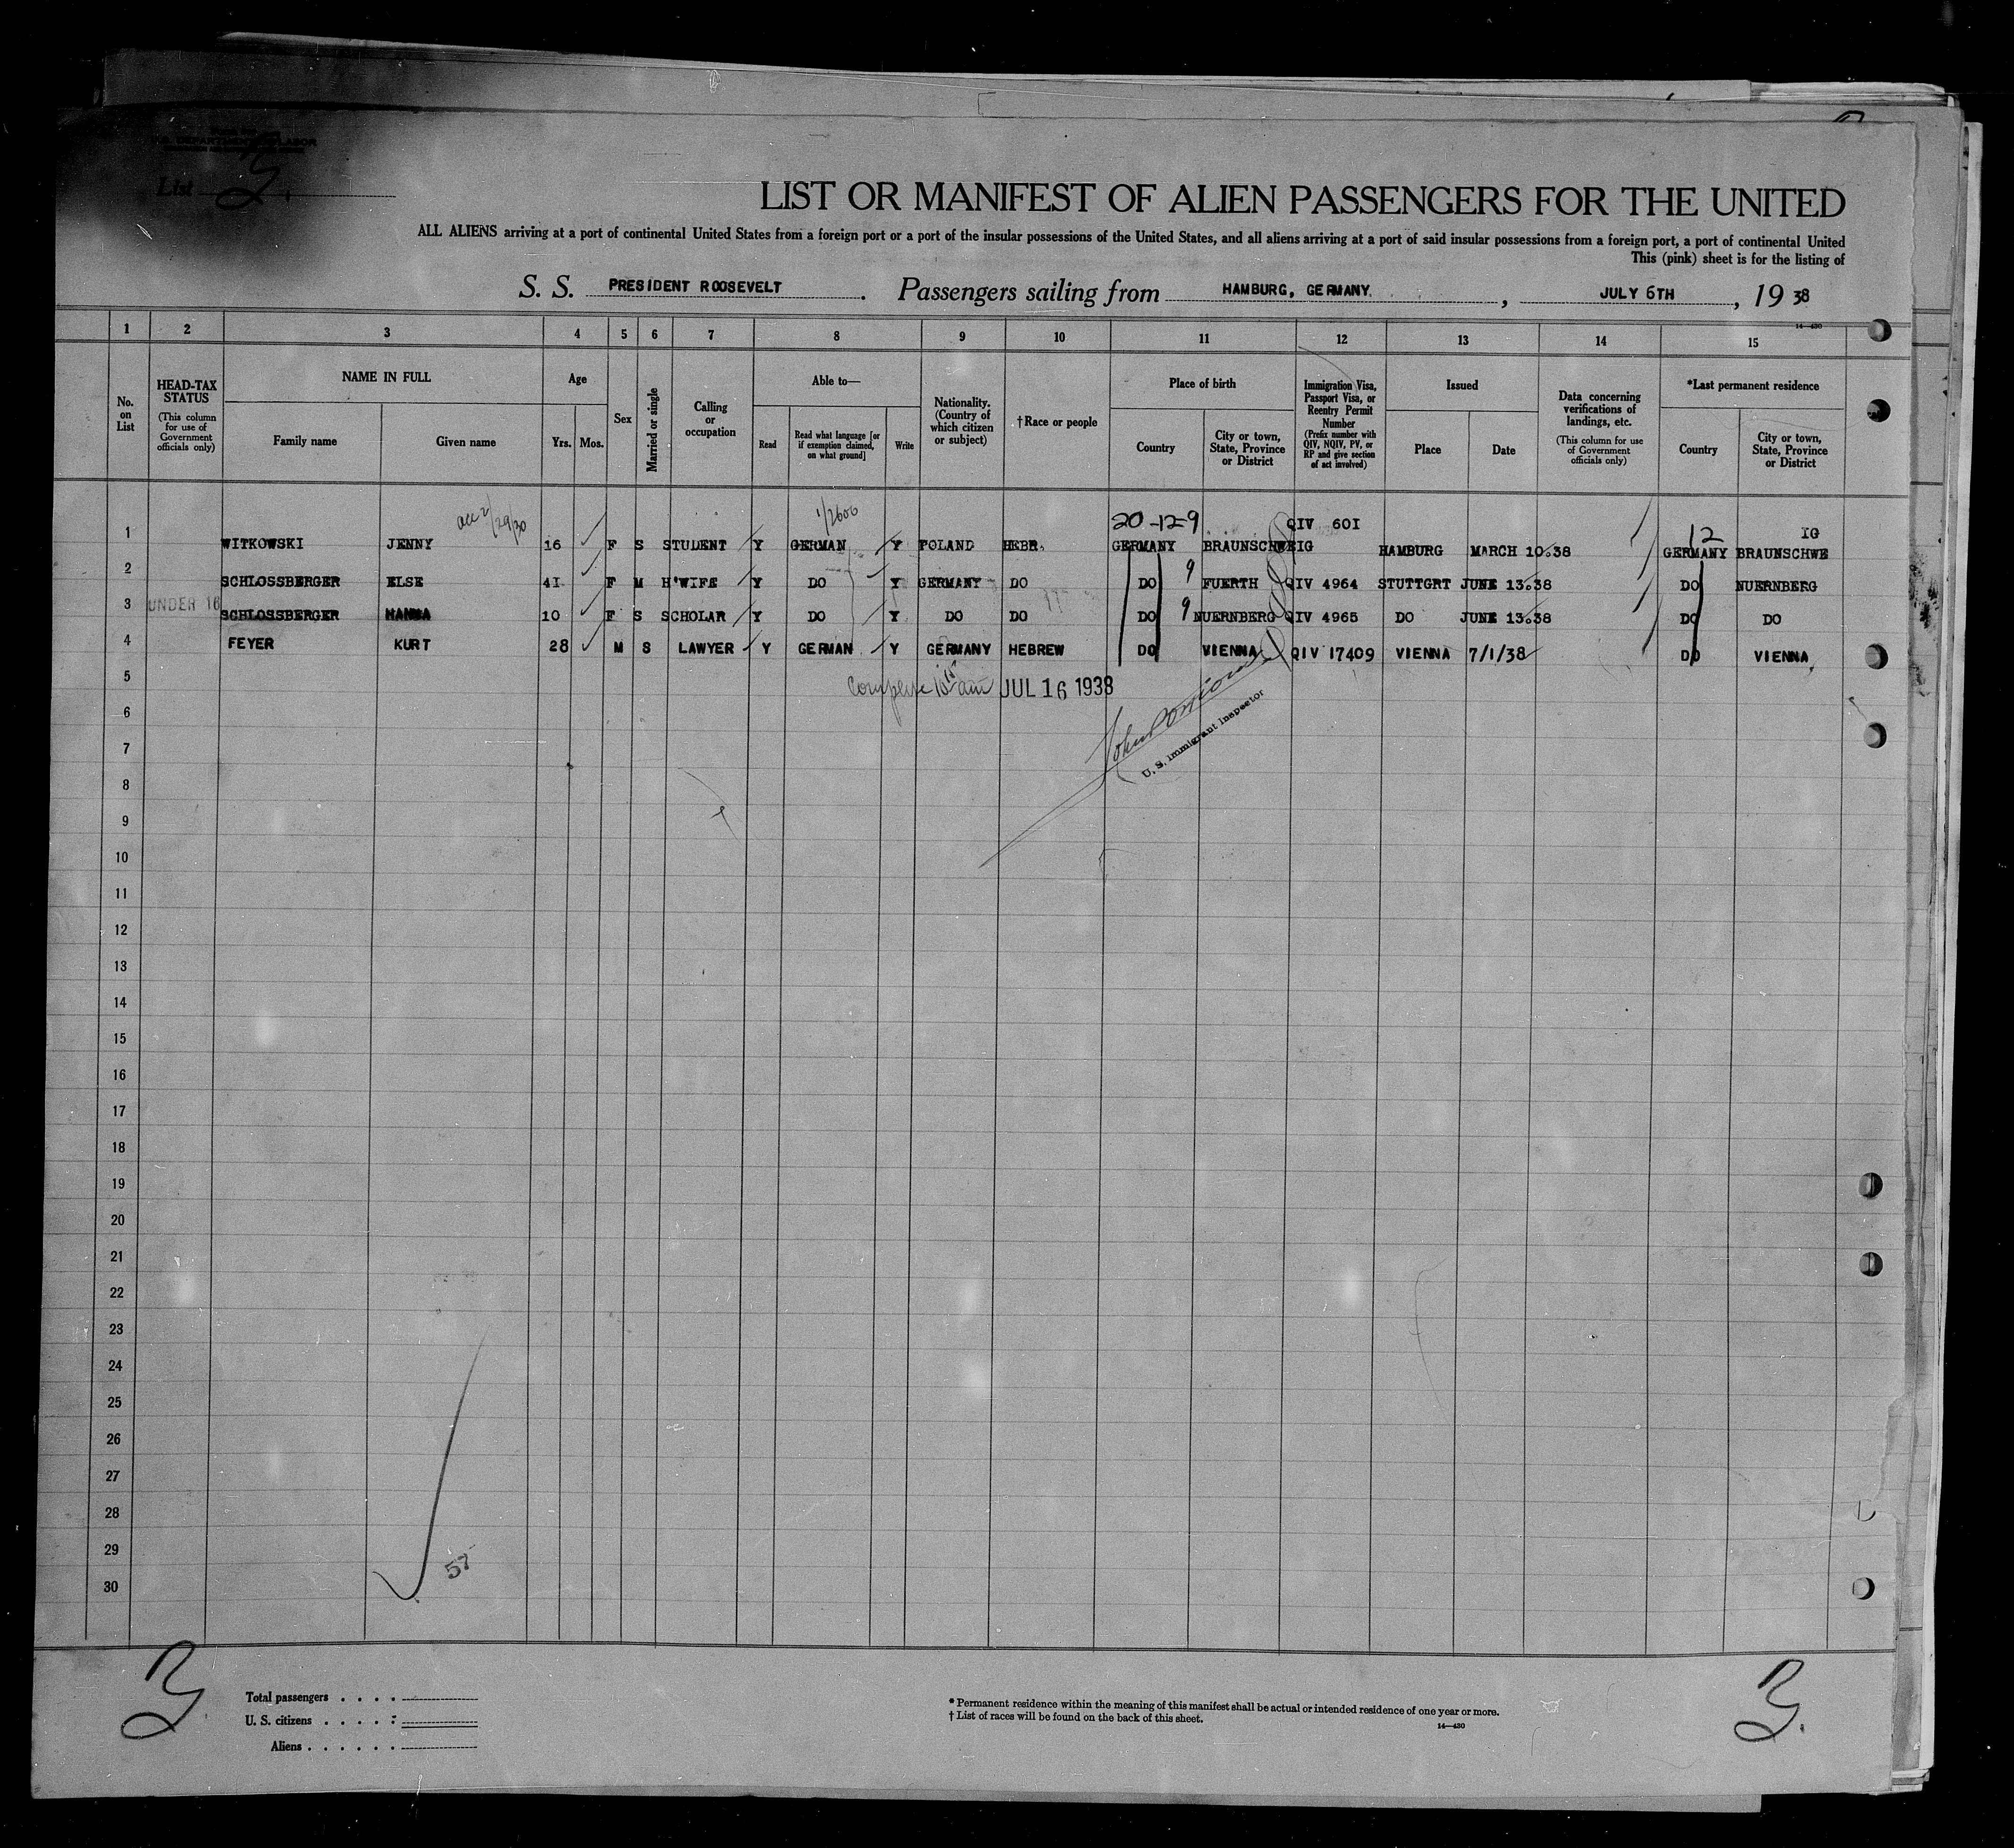 U.S. DEPARTMENT OF LABOR
List 3.
LIST OR MANIFEST OF ALIEN PASSENGERS FOR THE UNITED
ALL ALIENS arriving at a port of continental United States from a foreign port or a port of the insular possessions of the United States, and all aliens arriving at a port of said insular possessions from a foreign port, a port of continental United
This (pink) sheet is for the listing of
S. S. PRESIDENT ROOSEVELT. Passengers sailing from HAMBURG, GERMANY., JULY 6TH, 1938
14—430
1 2 3 4 5 6 7 8 9 10 11 12 13 14 15
No. on List
HEAD-TAX STATUS (This column for use of Government officials only)
NAME IN FULL
Family name Given name
Age
Yrs. Mos.
Sex
Married or single
Calling or occupation
Able to—
Read Read what language [or if exemption claimed, on what ground] Write
Nationality. (Country of which citizen or subject)
†Race or people
Place of birth
Country City or town, State, Province or District
Immigration Visa, Passport Visa, or Reentry Permit Number (Prefix number with QIV, NQIV, PV, or RP and give section of act involved)
Issued
Place Date
Data concerning verifications of landings, etc. (This column for use of Government officials only)
*Last permanent residence
Country City or town, State, Province or District
20-12-9 QIV 60I 12 IG
1 WITKOWSKI JENNY 16 F S STUDENT Y GERMAN Y POLAND HEBR. GERMANY BRAUNSCHWEIG HAMBURG MARCH 10.38 GERMANY BRAUNSCHWE
2 SCHLOSSBERGER ELSE 4I F M H'WIFE Y DO Y GERMANY DO DO 9 FUERTH QIV 4964 STUTTGRT JUNE 13.38 DO NUERNBERG
3 UNDER 16 SCHLOSSBERGER HANNA 10 F S SCHOLAR Y DO Y DO DO DO 9 NUERNBERG QIV 4965 DO JUNE 13.38 DO DO
4 FEYER KURT 28 M S LAWYER Y GERMAN Y GERMANY HEBREW DO VIENNA QIV 17409 VIENNA 7/1/38 DO VIENNA
5 JUL 16 1938
6
7 U. S. Immigrant Inspector
8
9
10
11
12
13
14
15
16
17
18
19
20
21
22
23
24
25
26
27
28
29
57
30
3 3.
Total passengers . . . .
U. S. citizens . . . . :
Aliens . . . . . .
* Permanent residence within the meaning of this manifest shall be actual or intended residence of one year or more.
† List of races will be found on the back of this sheet.
14—430